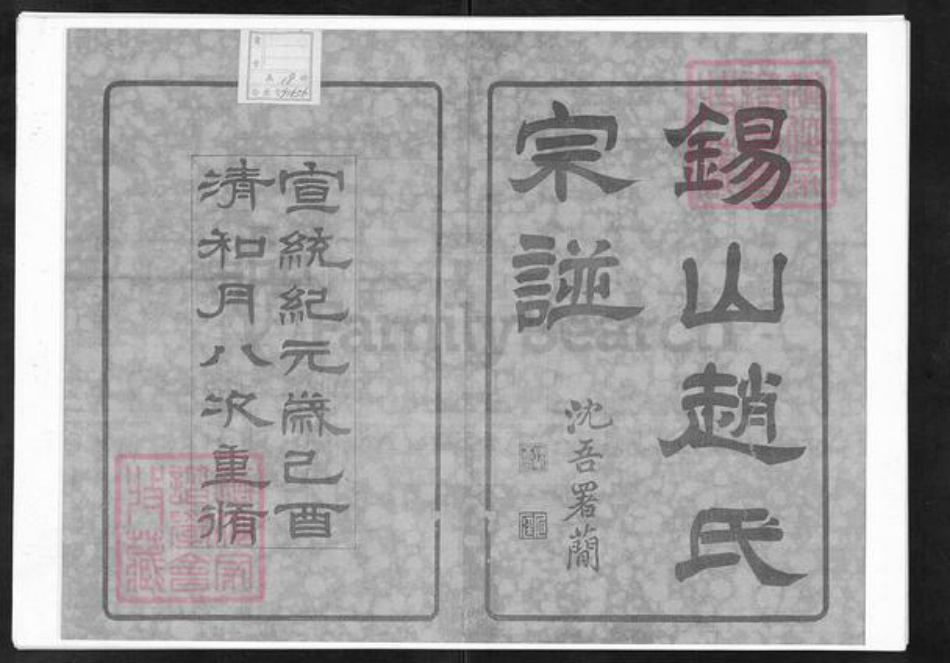 錫山趙氏
宗譜
沈吾署簡
宣統紀元歲己酉
清和月八次重脩
FamilySearch